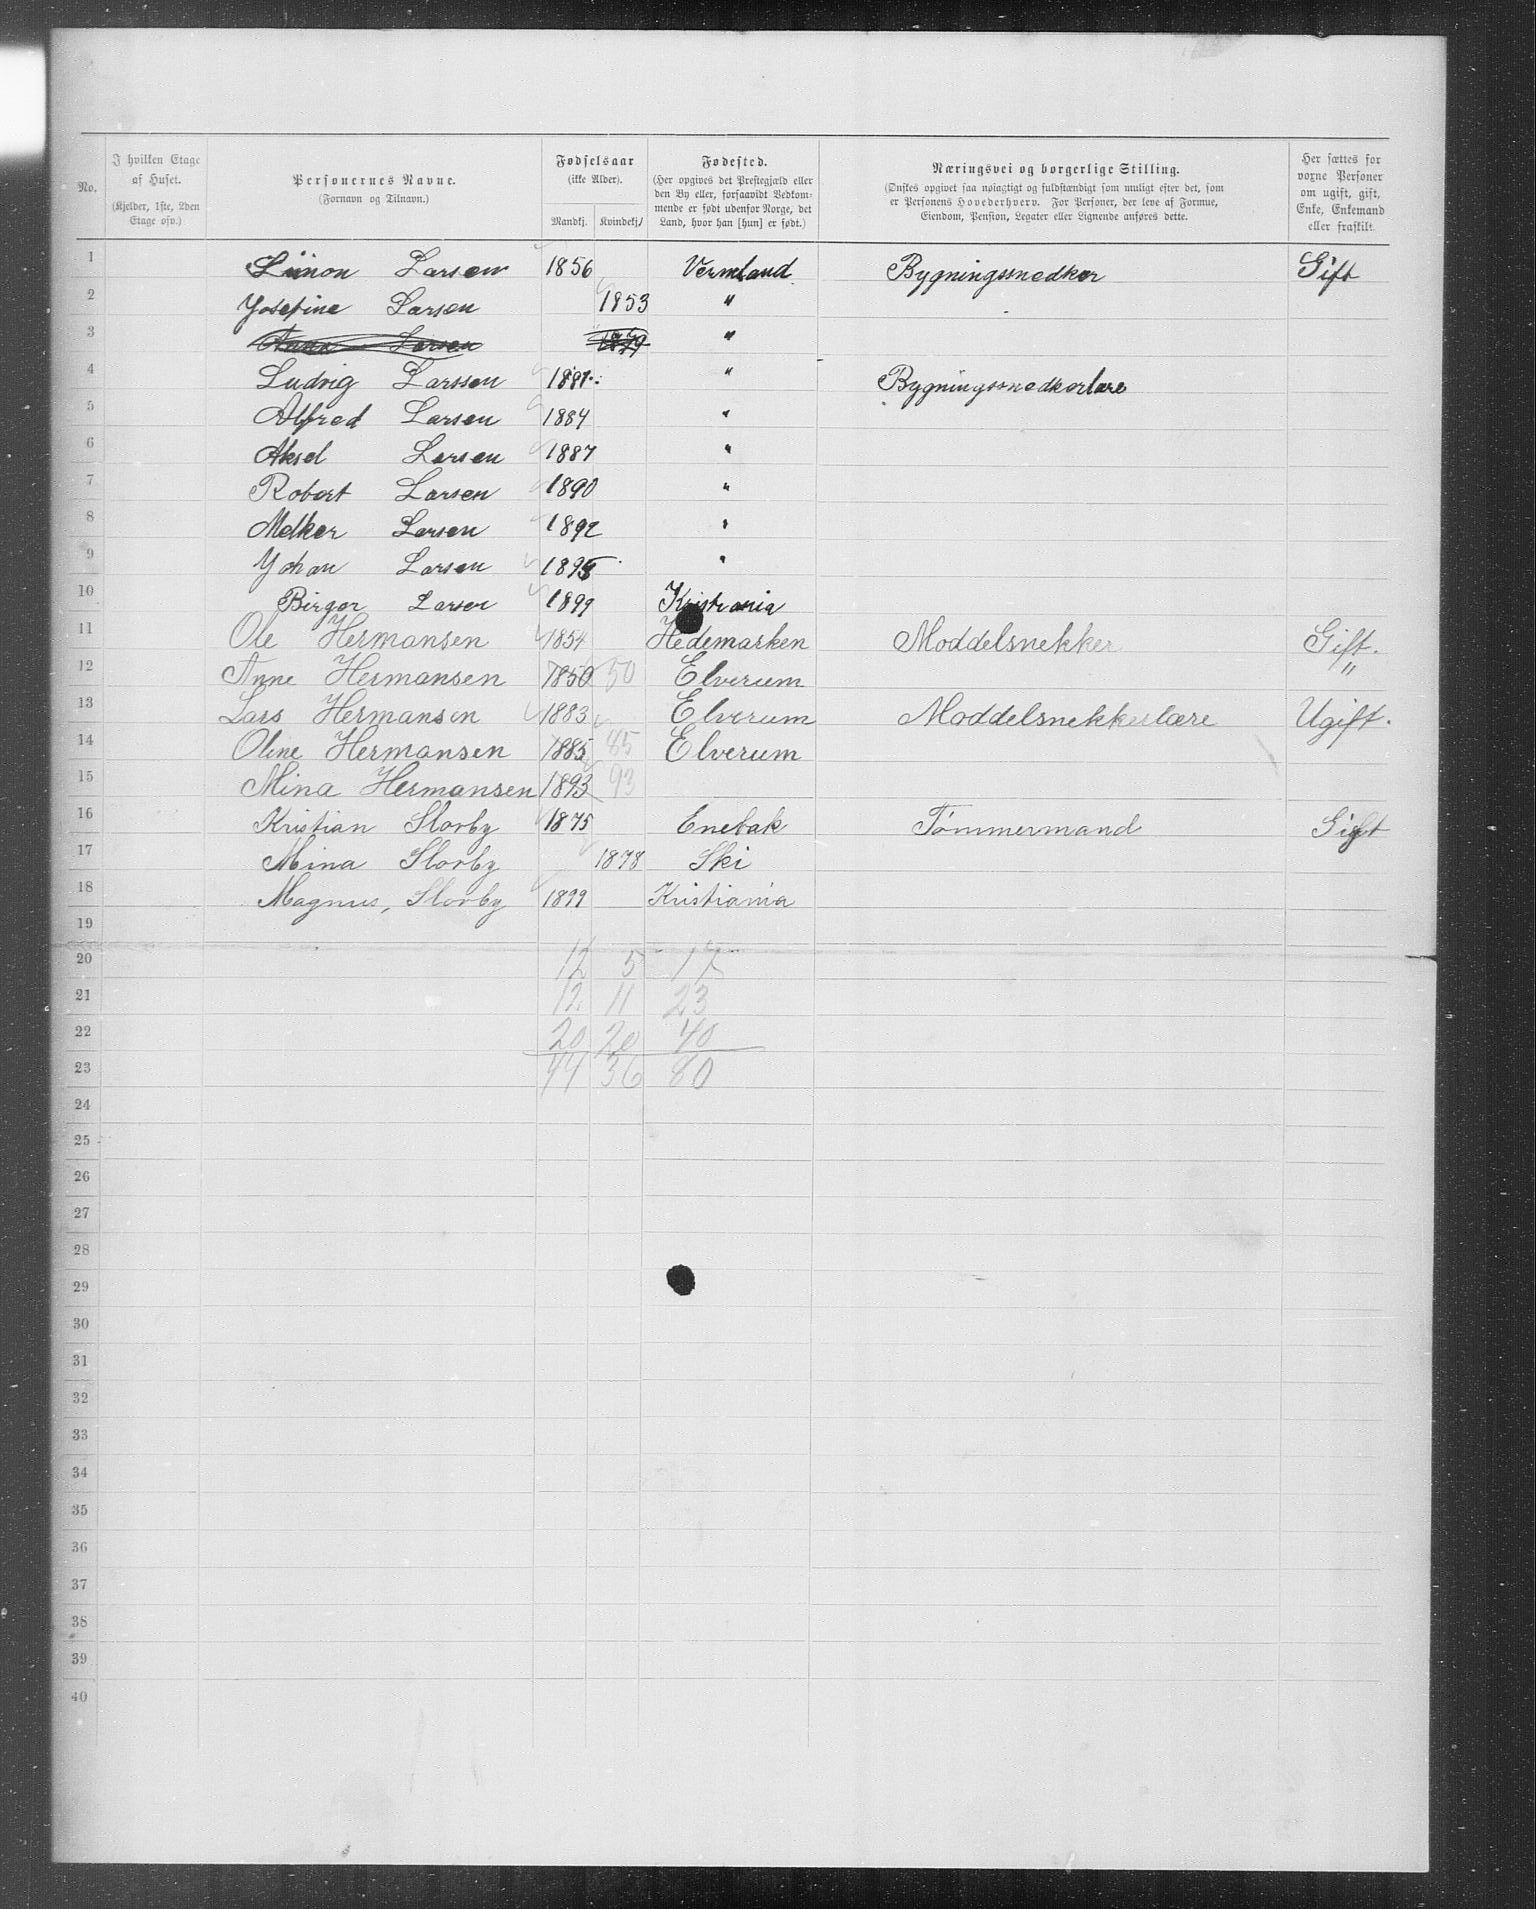 No.
I hvilken Etage af Huset. (Kjelder, 1ste, 2den Etage osv.)
Personernes Navne. (Fornavn og Tilnavn.)
Fødselsaar (ikke Alder). Mandkj. Kvindekj.
Fødested. (Her opgives det Prestegjæld eller den By eller, forsaavidt Vedkommende er født udenfor Norge, det Land, hvor han [hun] er født.)
Næringsvei og borgerlige Stilling. (Ønskes opgivet saa nøiagtigt og fuldstændigt som muligt efter det, som er Personens Hovederhverv. For Personer, der leve af Formue, Eiendom, Pension, Legater eller Lignende anføres dette.
Her sættes for voxne Personer om ugift, gift, Enke, Enkemand eller fraskilt.
1 Simon Larsen 1856 Vermland Bygningssnedker Gift
2 Josefine Larsen 1853 "
3 Anna Larsen 1879 "
4 Ludvig Larssen 1881 " Bygningssnedkerlære
5 Alfred Larsen 1884 "
6 Aksel Larsen 1887 "
7 Robert Larsen 1890 "
8 Melker Larsen 1892 "
9 Johan Larsen 1895 "
10 Birger Larsen 1899 Kristiania
11 Ole Hermansen 1854 Hedemarken Moddelsnekker Gift.
12 Anne Hermansen 1850 50 Elverum "
13 Lars Hermansen 1883 Elverum Moddelsnekkerlære Ugift.
14 Oline Hermansen 1885 85 Elverum
15 Mina Hermansen 1893 93
16 Kristian Slorby 1875 Enebak Tømmermand Gift
17 Mina Slorby 1878 Ski
18 Magnus, Slorby 1899 Kristiania
19
20 12 5 17
21 12 11 23
22 20 20 40
23 44 36 80
24
25
26
27
28
29
30
31
32
33
34
35
36
37
38
39
40